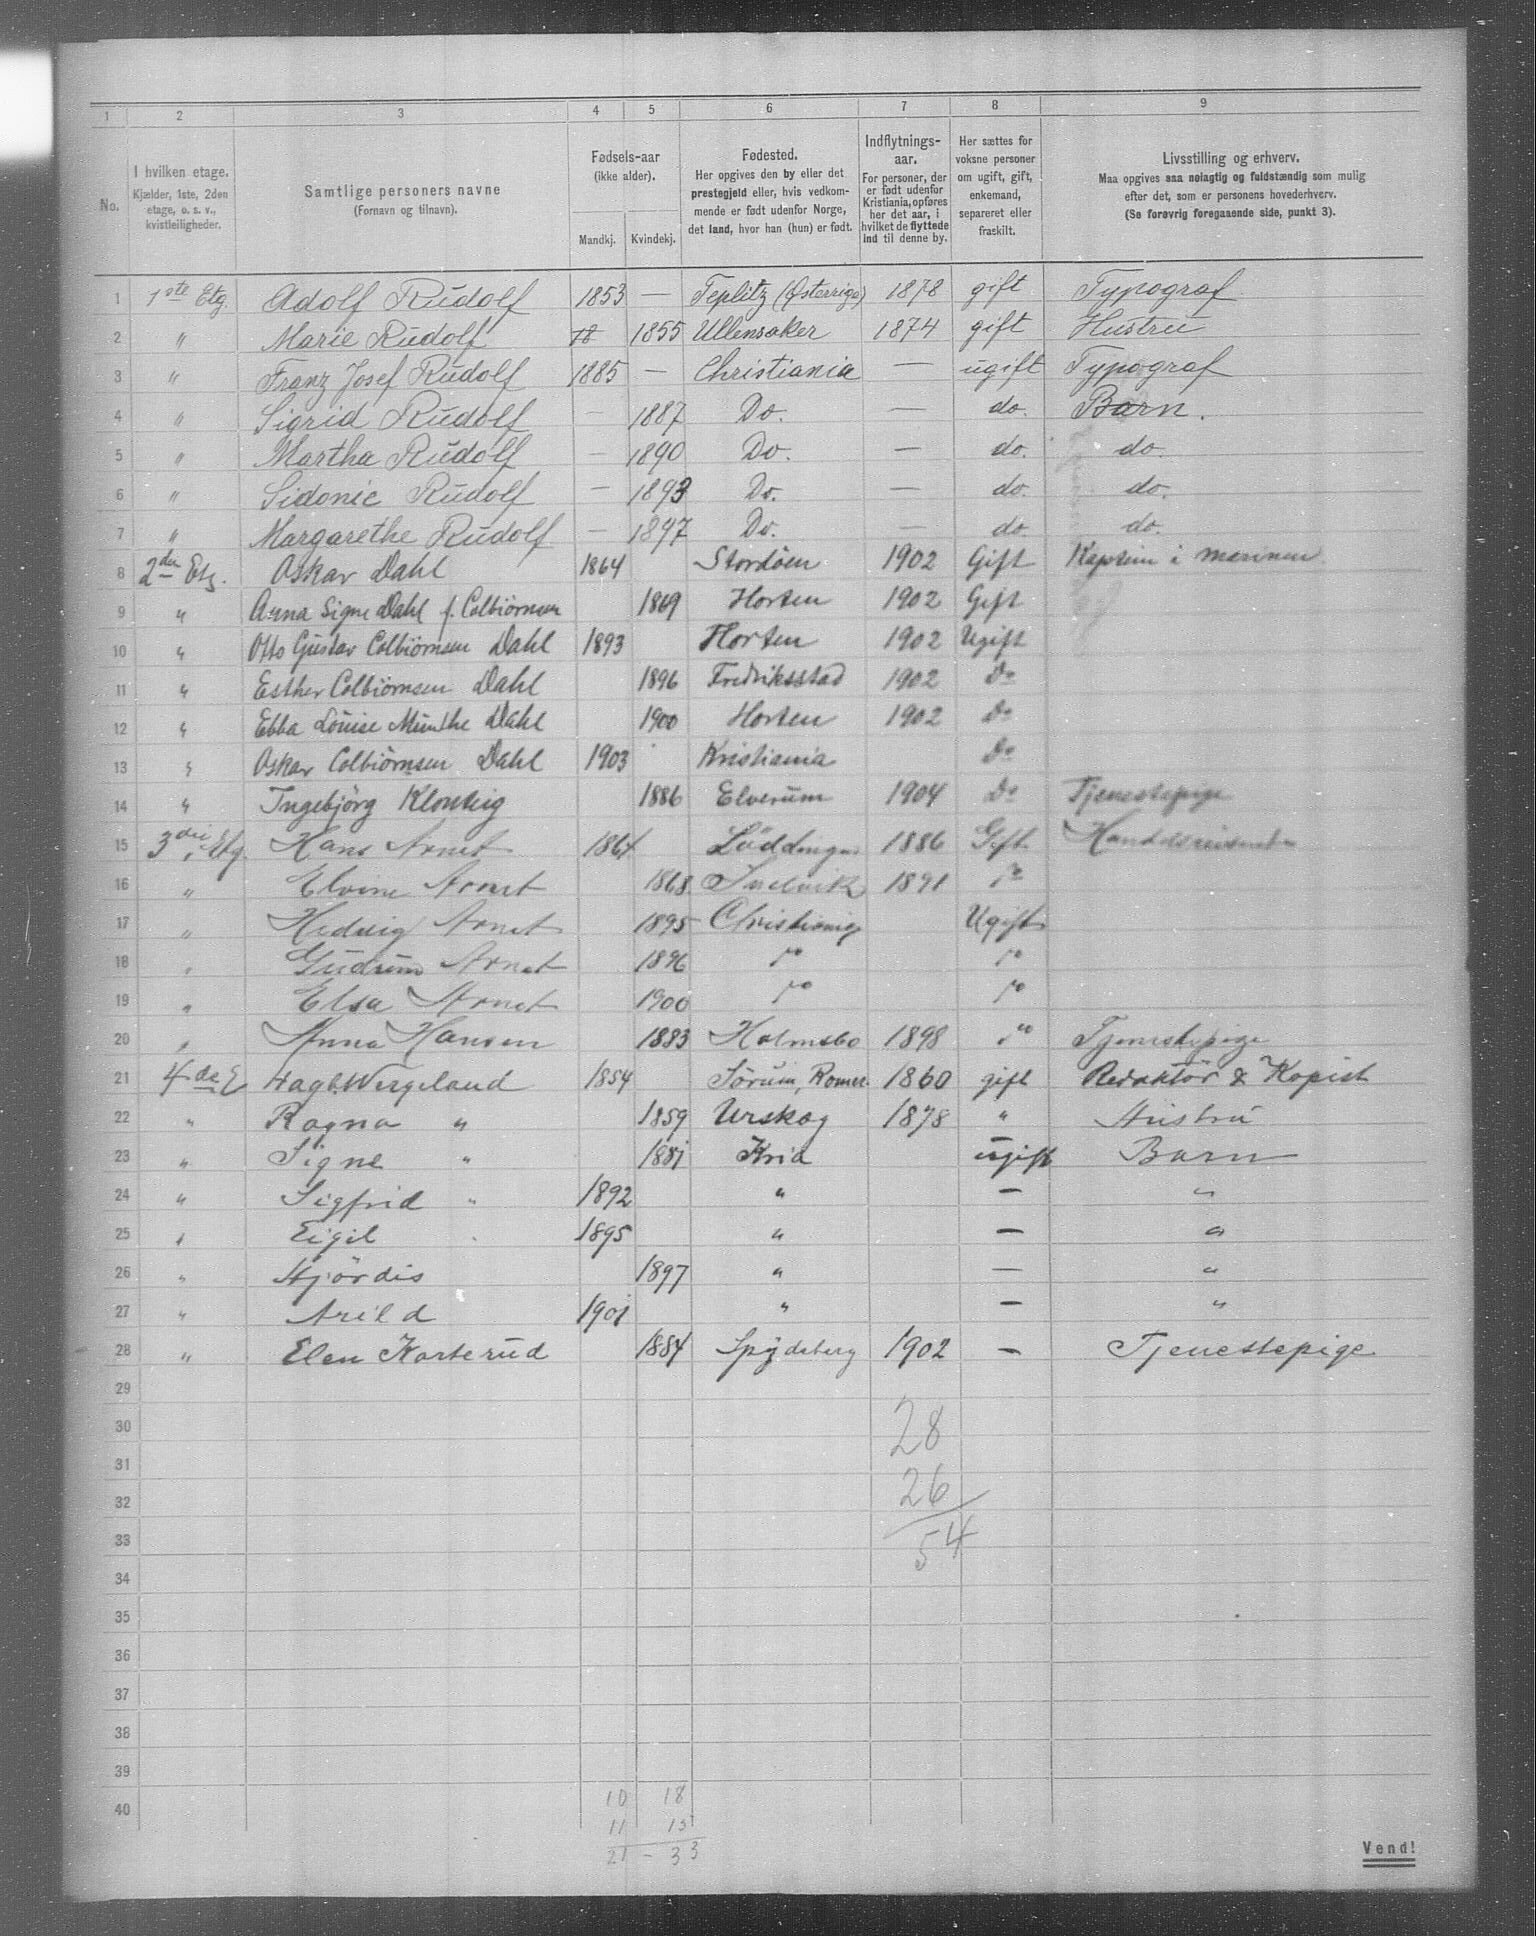 1 2 3 4 5 6 7 8 9
No.
I hvilken etage.
Kjælder, 1ste, 2den
etage, o. s. v.,
kvistleiligheder.
Samtlige personers navne
(Fornavn og tilnavn).
Fødsels-aar
(ikke alder).
Mandkj. Kvindekj.
Fødested.
Her opgives den by eller det
prestegjeld eller, hvis vedkom-
mende er født udenfor Norge,
det land, hvor han (hun) er født.
Indflytnings-
aar.
For personer, der
er født udenfor
Kristiania, opføres
her det aar, i
hvilket de flyttede
ind til denne by.
Her sættes for
voksne personer
om ugift, gift,
enkemand,
separeret eller
fraskilt.
Livsstilling og erhverv.
Maa opgives saa nøiagtig og fuldstændig som mulig
efter det, som er personens hovederhverv.
(Se forøvrig foregaaende side, punkt 3).
1 1ste Etg. Adolf Rudolf 1853 — Teplitz (Østerrige) 1878 gift Typograf
2 " Marie Rudolf 18 1855 Ullensaker 1874 gift Hustru
3 " Franz Josef Rudolf 1885 — Christiania — ugift Typograf
4 " Sigrid Rudolf — 1887 Do. — do. Barn.
5 " Martha Rudolf — 1890 Do. — do. do.
6 " Sidonie Rudolf — 1893 Do. — do. do.
7 " Margarethe Rudolf — 1897 Do. — do. do.
8 2den Etg. Oskar Dahl 1864 Stordöen 1902 Gift Kaptein i marinen
9 " Anna Signe Dahl f. Colbiörnsen 1869 Horten 1902 Gift
10 " Otto Gustav Colbiörnsen Dahl 1893 Horten 1902 Ugift
11 " Esther Colbiörnsen Dahl 1896 Fredriksstad 1902 Do
12 " Ebba Louise Munthe Dahl 1900 Horten 1902 Do
13 " Oskar Colbiörnsen Dahl 1903 Kristiania Do
14 " Ingebjörg 1886 Elverum 1904 Do Tjenestepige
15 3die Etg. Hans Arnet 1864 Lödingen 1886 Gift Handelsreisende
16 " Elvine Arnet 1868 1891 Do
17 " Hedvig Arnet 1895 Christiania Ugift
18 " Gudrun Arnet 1896 Do Do
19 " Elsa Arnet 1900 Do Do
20 " Anna Hansen 1883 Holmsbo 1898 Do Tjenestepige
21 4de E Hagb. Wergeland 1854 Sørum, Romer. 1860 gift Redaktör & Kopist
22 " Ragna " 1859 Urskog 1878 " Hustru
23 " Signe " 1881 Kria ugift Barn
24 " Sigfrid " 1892 " — "
25 " Eigil 1895 " — "
26 " Hjördis 1897 " — "
27 " Arild 1901 " — "
28 " Elen Karterud 1884 Spydeberg 1902 — Tjenestepige
29
30 28
31
32 26
33 54
34
35
36
37
38
39
40 10 18
11 15
21 - 33
Vend!